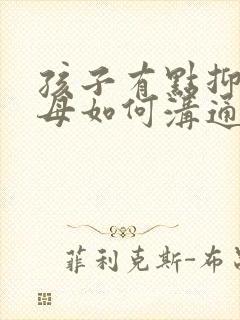 孩子有點抑
母如何溝通
菲利克斯-布